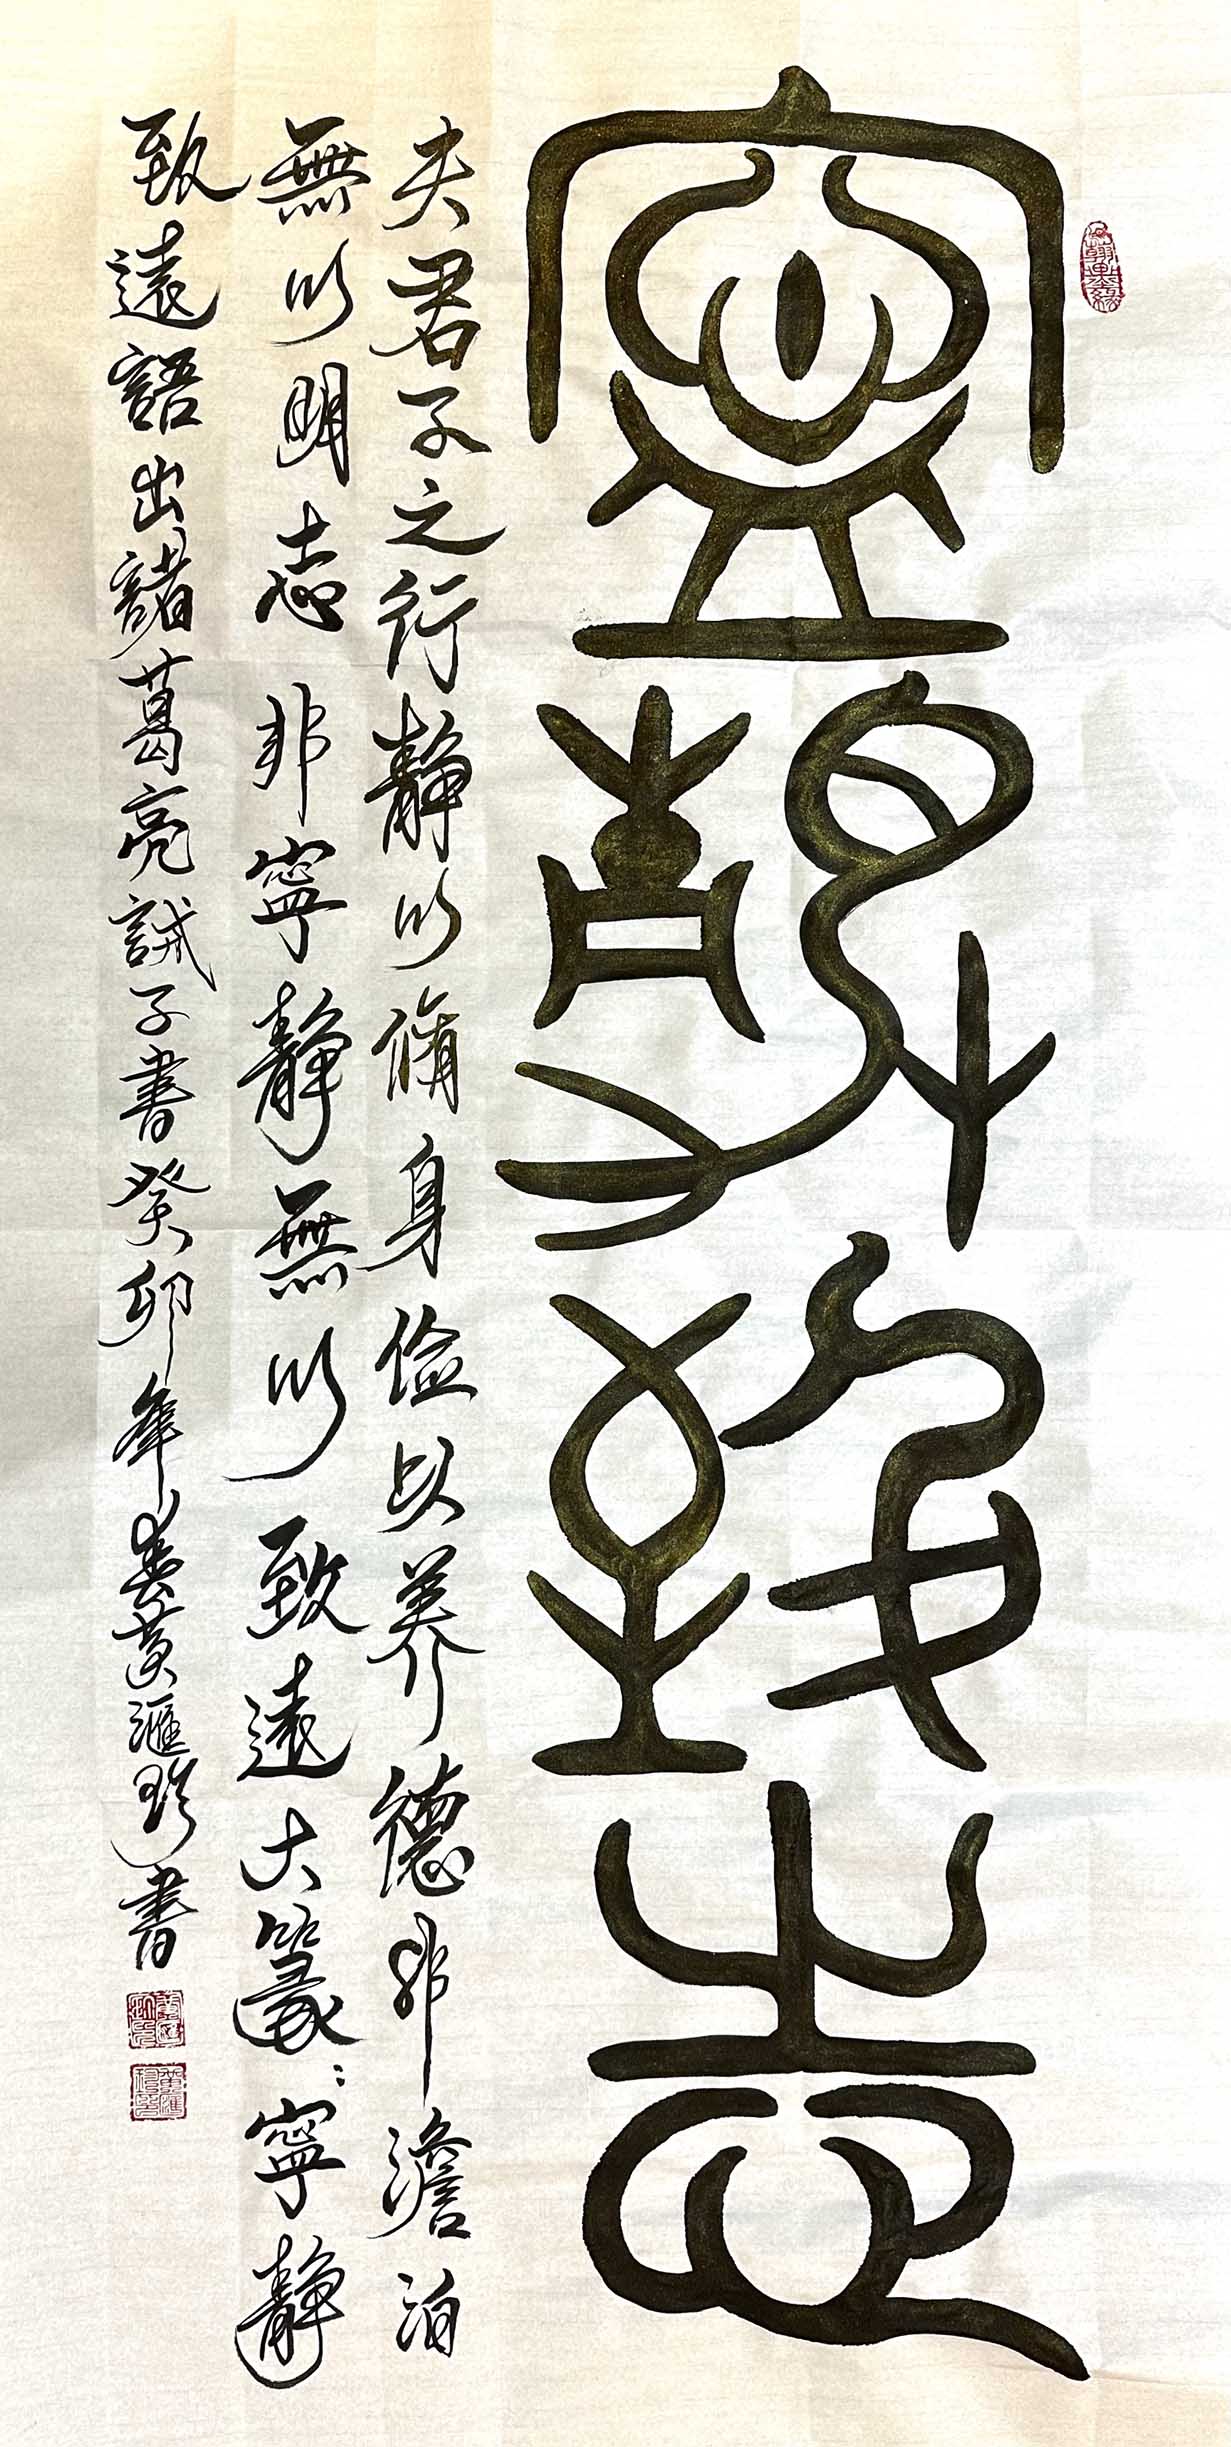 寧靜致志
夫君子之行靜以脩身俭以养德非澹泊
無以明志非寧靜無以致遠大篆：寧靜
致遠語出諸葛亮誡子書癸卯年春黃滙珍書